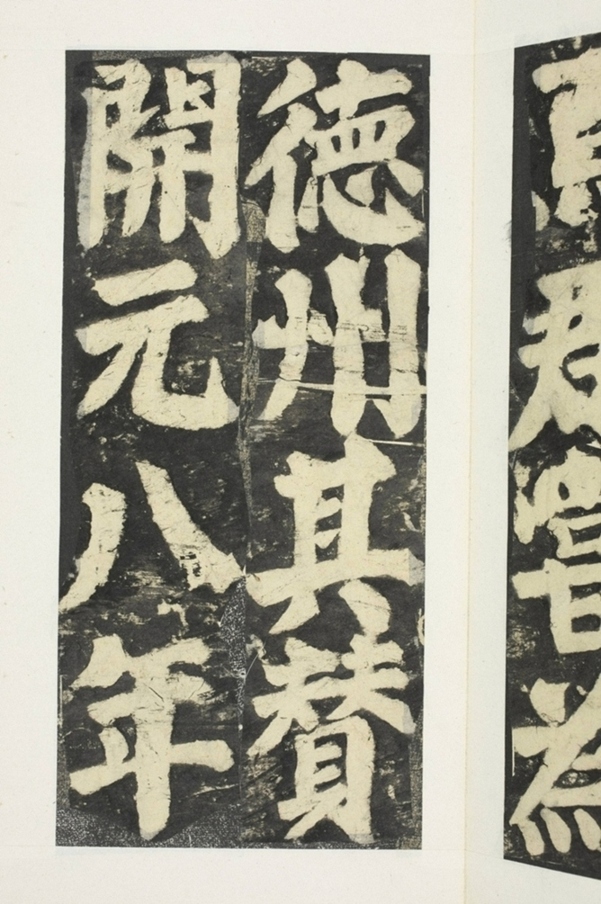 嘗為
德州其贊
開元八年